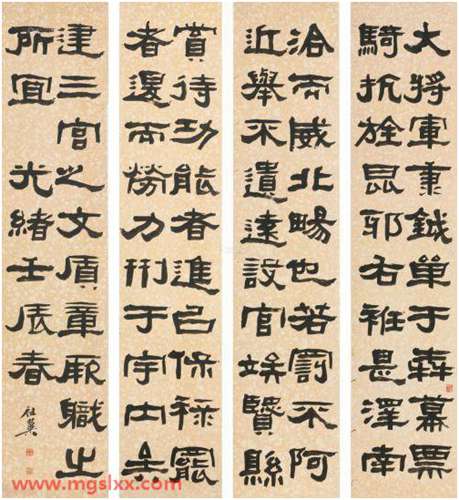 大將軍秉鉞單于犇幕票
騎抗旌昆邪右袵是澤南
洽而威北暢也若罰不阿
近舉不遺遠設官竢賢縣
賞待功能者進㠯保祿罷
者退而勞力刑于宇內矣
建三宮之文質章厥職之
所宜 光緒壬辰春
www.mgslxx.com